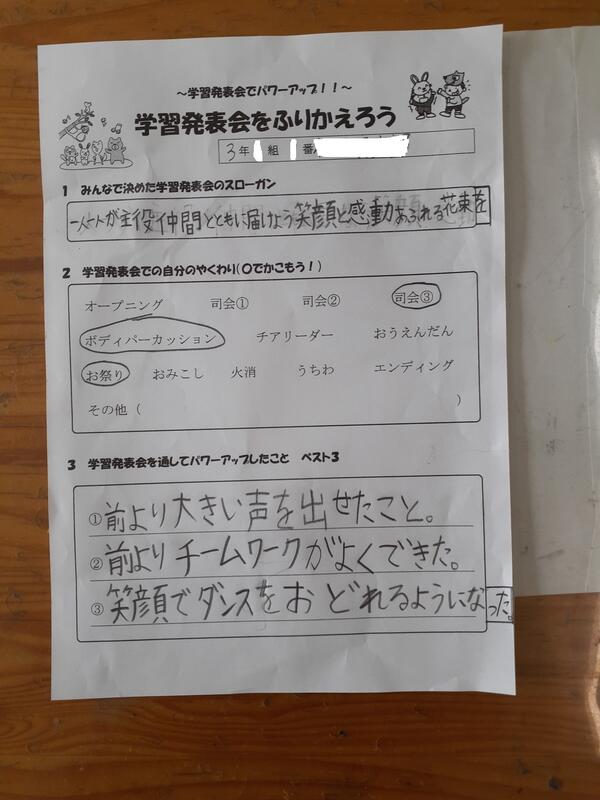 ～学習発表会でパワーアップ！！～
学習発表会をふりかえろう
3年 組 1番
1 みんなで決めた学習発表会のスローガン
一人一人が主役仲間とともに届けよう笑顔と感動あふれる花束を
2 学習発表会での自分のやくわり(○でかこもう！)
オープニング 司会① 司会② 司会③
ボディパーカッション チアリーダー おうえんだん
お祭り おみこし 火消 うちわ エンディング
その他（ ）
3 学習発表会を通してパワーアップしたこと ベスト3
①前より大きい声を出せたこと。
②前よりチームワークがよくできた。
③笑顔でダンスをおどれるようになった。